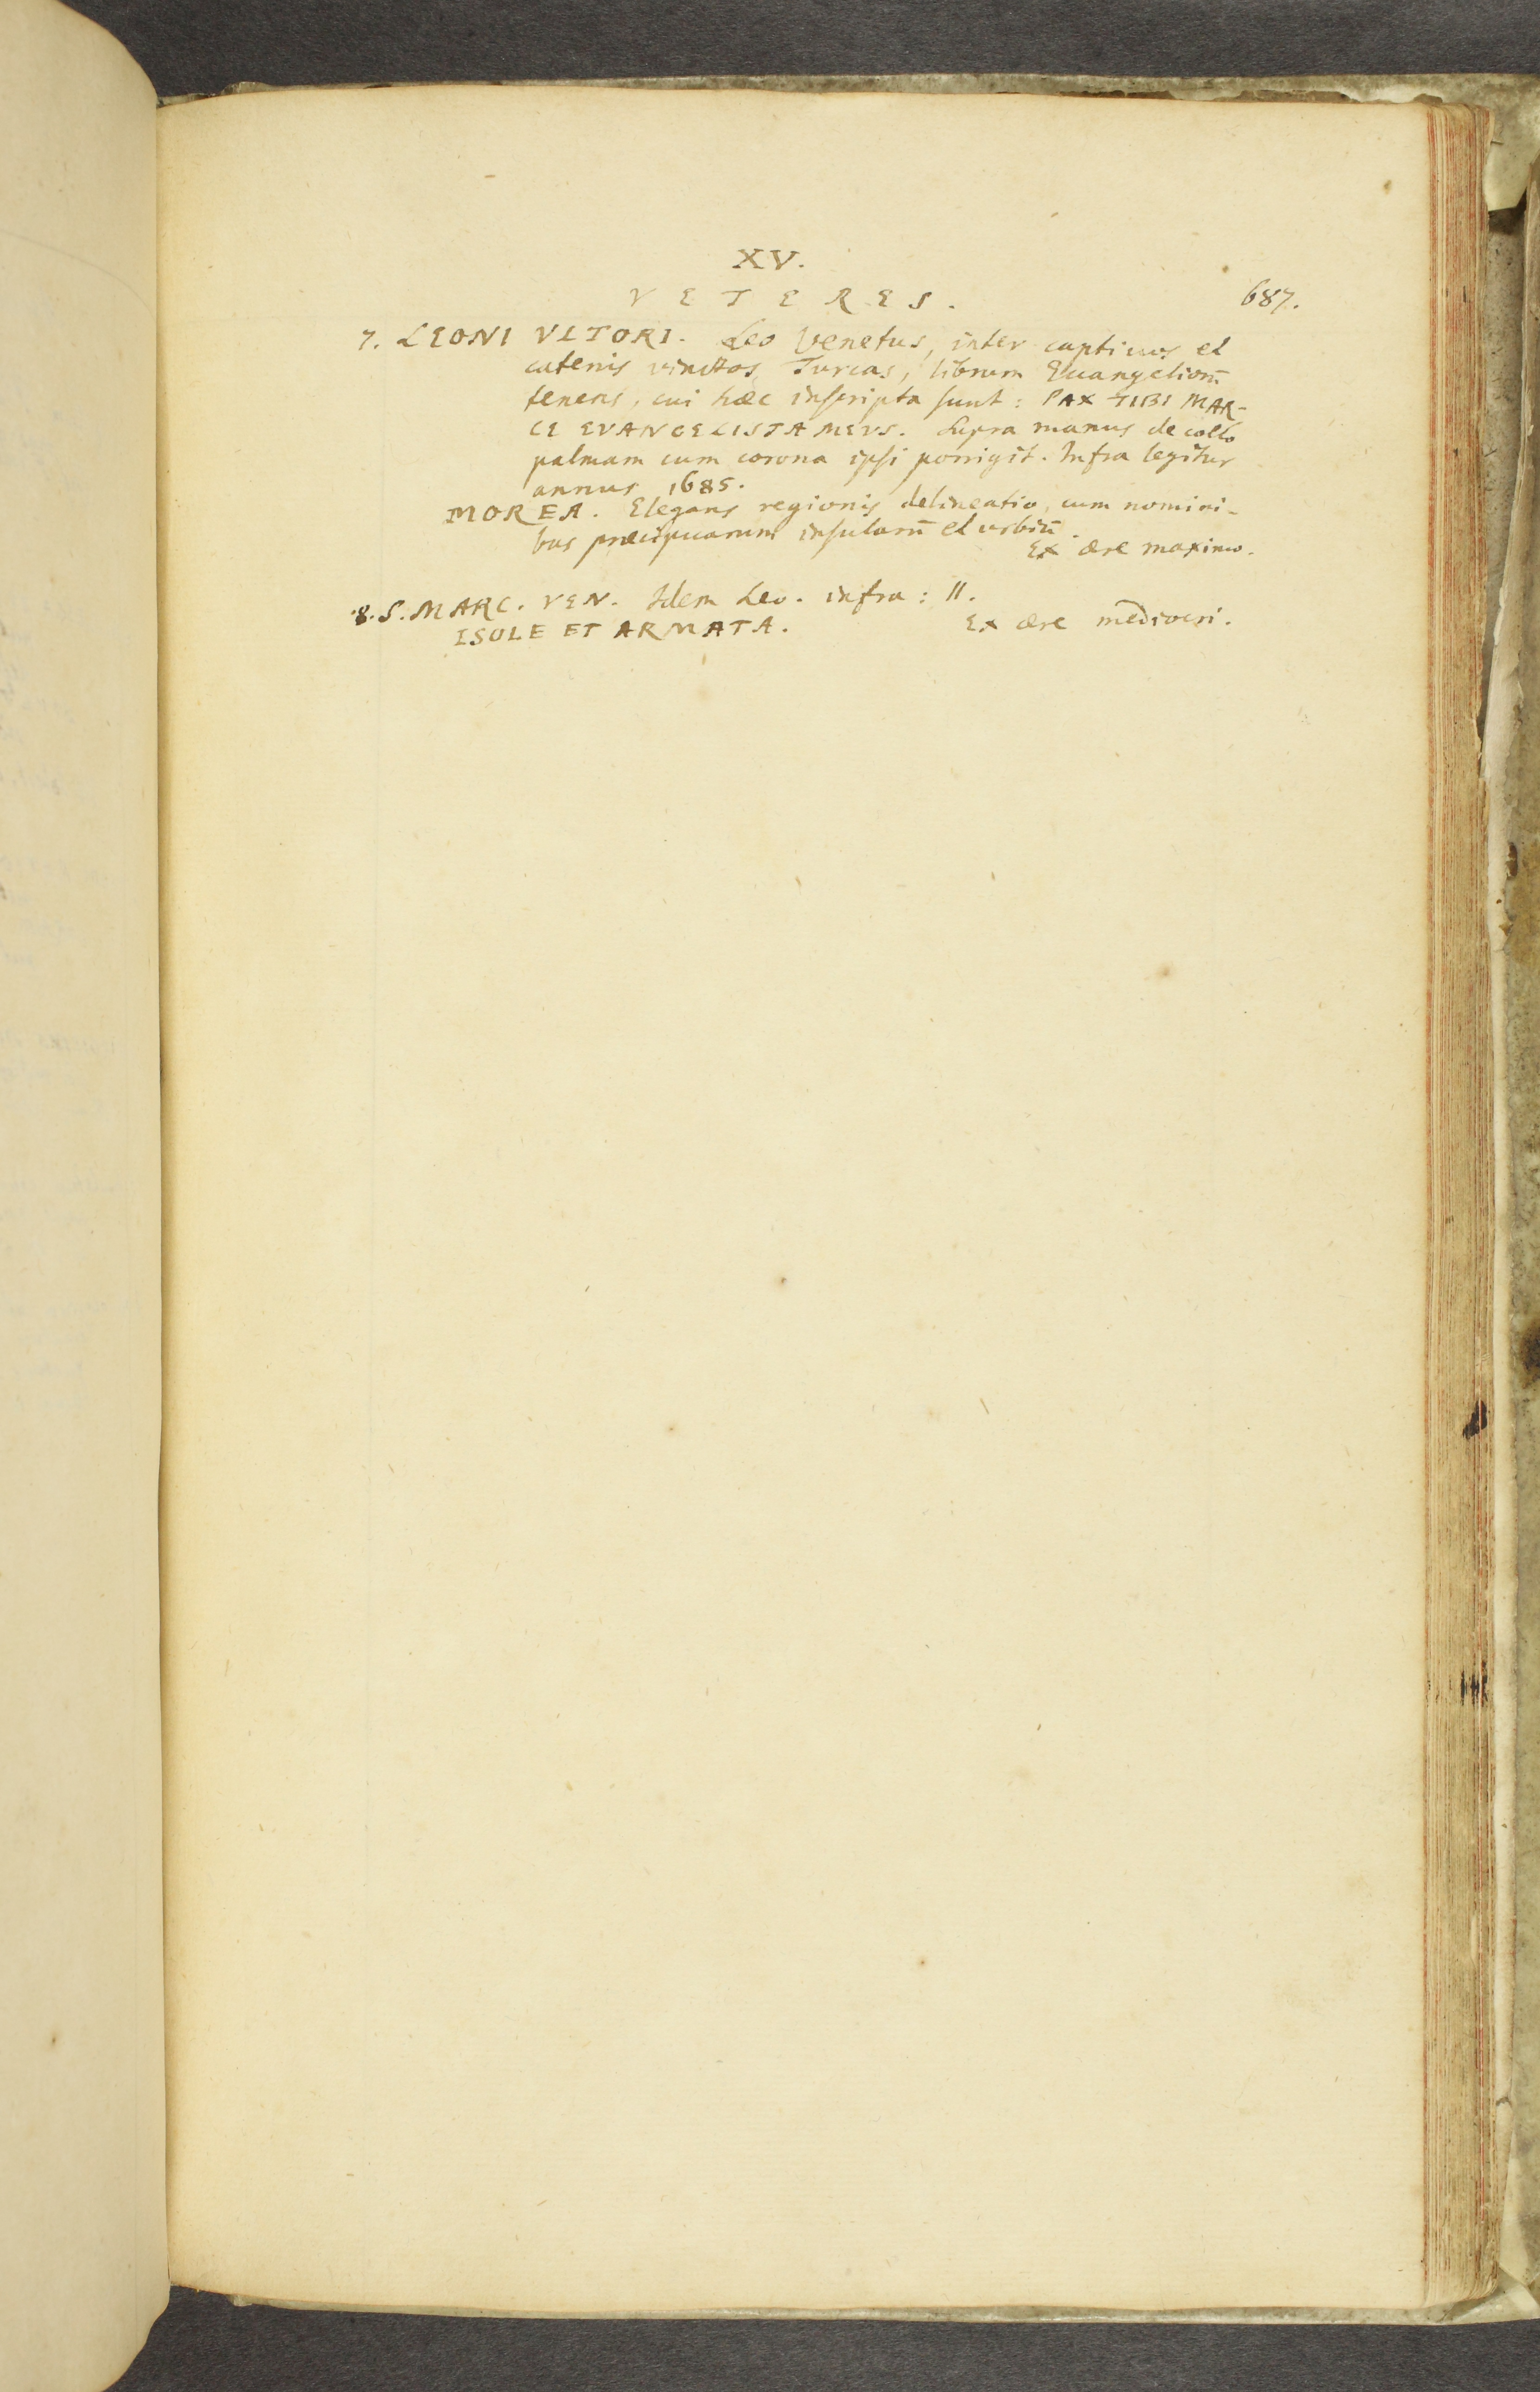 XV.
VETERES.
687.
7. LEONI VLTORI. Leo Venetus, inter captiuos et
catenis vinctos Turcas, librum Euangeliorū
tenens, cui hæc inscripta sunt: PAX TIBI MAR-
CE EVANGELISTA MEVS. Supra manus de cœlo
palmam cum corona ipsi porrigit. Infra legitur
annus 1685.
MOREA. Elegans regionis delineatio, cum nomini-
bus præcipuarum insularū et urbiū.
Ex ære maximo.
8. S. MARC. VEN. Idem Leo. infra: II.
ISOLE ET ARMATA.
Ex ære mediocri.